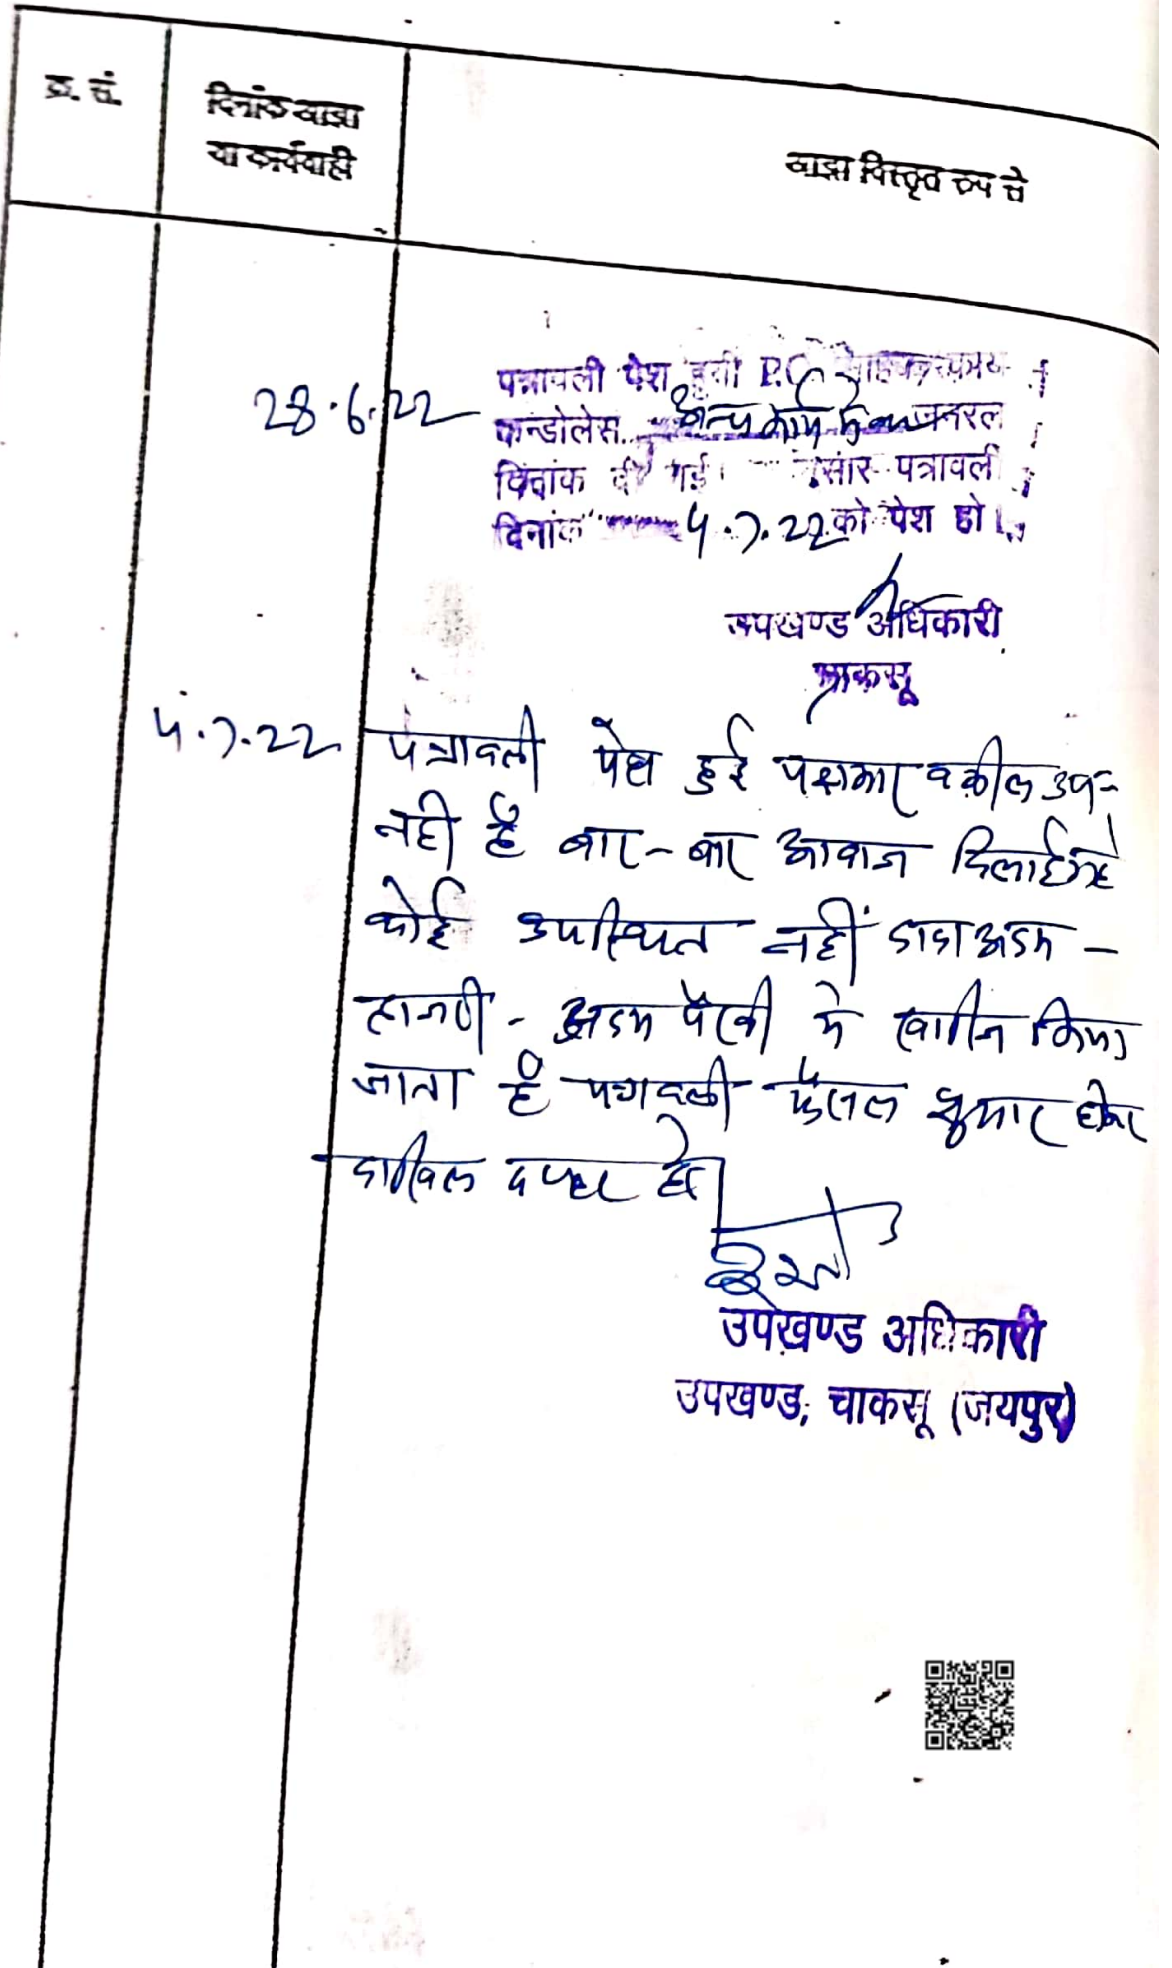 क्र. सं.
दिनांक आज्ञा
या कार्यवाही
आज्ञा विस्तृत रूप से
28.6.22
पत्रावली पेश हुयी P.O.
कन्डोलेस अन्य कार्य में जनरल
दी गई। पत्रावली
दिनांक 5.7.22 को पेश हो।
उपखण्ड अधिकारी
चाकसू
5.7.22
पत्रावली पेश हुई पक्षकार वकील उप-
नही है बार-बार आवाज दिलाई गई
कोई उपस्थित नहीं अदम-
हाजरी - अदम पैरवी मे खारीज किया
जाता है पत्रावली फैसल शुमार होकर
दाखिल दफ्तर हो
उपखण्ड अधिकारी
उपखण्ड, चाकसू (जयपुर)